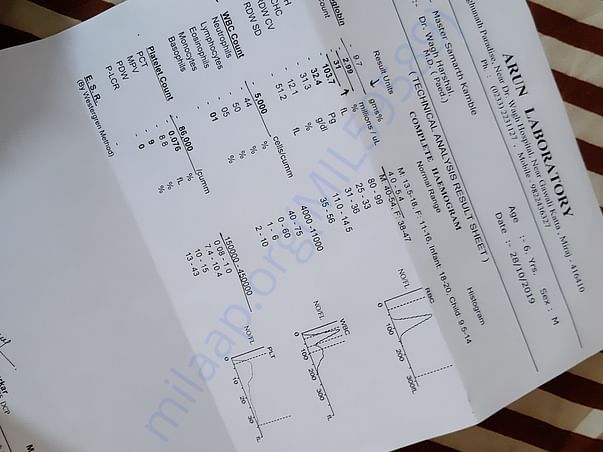 ARUN LABORATORY
Paradise, Near Dr. Wagh Hospital, Near Gavali Katta, Miraj - 416410
Ph : (0233) 2231127 , Mobile
Master Samarth Kamble
Age :- 6. Yrs. Sex : M
Dr. Wagh Harshal,
M.D. ( Paed.)
Date :- 28/10/2019
( TECHNICAL ANALYSIS RESULT SHEET )
COMPLETE HAEMOGRAM
Result Units Normal Range Histogram
9.7 gms% M: 13.5-18, F: 11-16, Infant: 18-20, Child: 9.5-14
2.99 millions / uL
M: 40-54, F: 38-47
103.7 fL 80 - 99
32.4 Pg 25 - 33
31.3 g/dl 31 - 36
RDW CV - % 11.0 - 14.5
RDW SD - 51.2 fL 35 - 56
WBC Count - 5,000 cells/cumm 4000 -11000
Neutrophils - 44 % 40 - 75
Lymphocytes - 50 % 0 - 60
Eosinophils - 05 % 1 - 6
Monocytes - 01 % 2 - 10
Basophils - %
Platelet Count - 86,000 /cumm 150000 - 450000
PCT - 0.076 % 0.08 - 1.0
MPV - 8.8 fL 7.4 - 10.4
PDW - 9 10 - 15
P-LCR - 0 % 13 - 43
E. S. R.
(By Westergren Method)
NO/FL RBC
0 100 200 300/fL
NO/FL WBC
0 100 200 300 fL
NO/FL PLT
0 10 20 30 fL
milaap.org/MIL